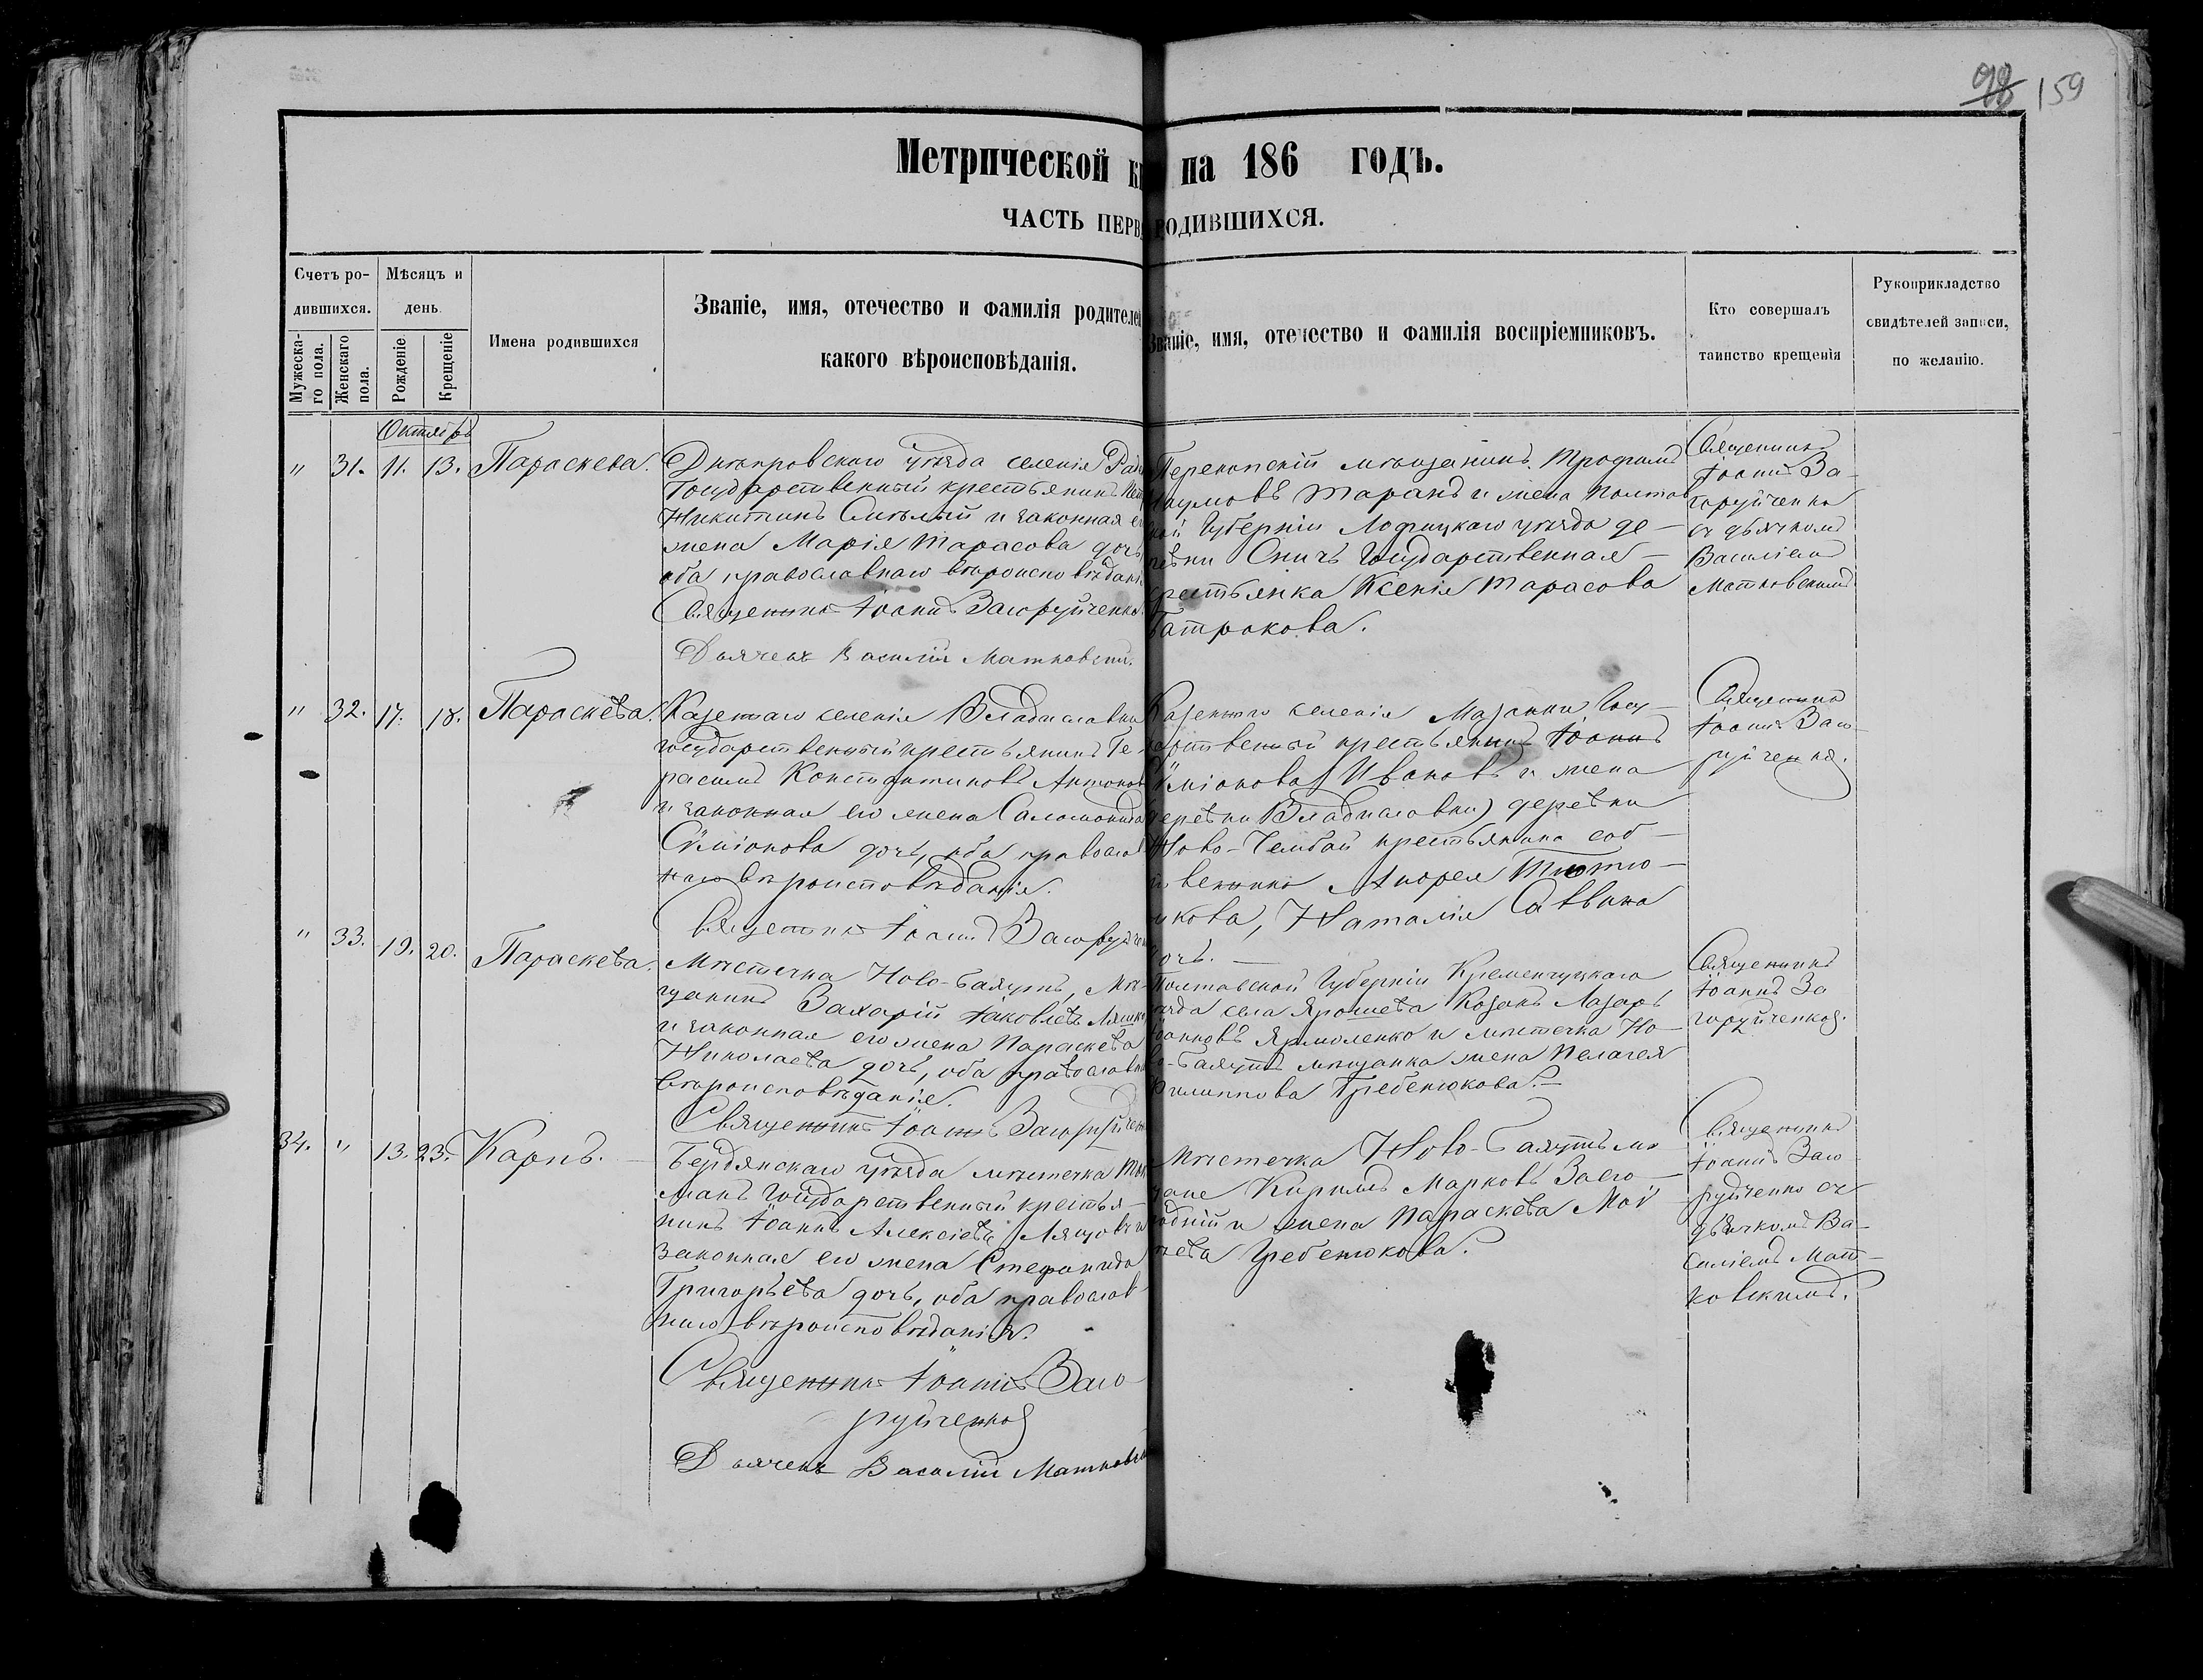 98 159
Метрической на 186 годъ.
ЧАСТЬ ПЕРВА РОДИВШИХСЯ.
Счетъ ро-
дившихся.
Мужеска-
го пола.
Женскаго
пола.
Мѣсяцъ и
день
Рожденіе
Крещеніе
Имена родившихся
Званіе, имя, отечество и фамилія родителей
какого вѣроисповѣданія.
Званіе, имя, отечество и фамилія воспріемниковъ.
Кто совершалъ
таинство крещенія
Рукоприкладство
свидѣтелей записи,
по желанію.
Октябрь
" 31. 11. 13. Параскева.
Днѣпровскаго уѣзда селенія
Государственный крестьянинъ
Никитинъ Смѣлый и законная
жена Марія Тарасова дочь
оба православнаго вѣроисповѣдан
Священникъ Іоаннъ Загоруйченко
Дьячекъ Василій Матковскій.
Перекопскій мѣщанинъ Трофимъ
Наумовъ Таранъ и жена Полтав
кой Губерніи Лофицкаго уѣзда де-
ревни Сничъ Государственная
крестьянка Ксенія Тарасова
Батракова.
Священникъ
Іоаннъ За-
горуйченко
съ дьячкомъ
Василіемъ
Матковскимъ
" 32. 17. 18. Параскева.
Казеннаго селенія Владиславки
государственный крестьянинъ Ге-
расимъ Константиновъ Антонов
и законная его жена Саломонида
Симіонова дочь, оба православ
наго вѣроисповѣданія.
Священникъ Іоаннъ Загоруйчен
Казеннаго селенія Мазанки Госу-
дарственный крестьянинъ Іоаннъ
Симіоновъ Ивановъ и жена
деревни Владиславки) деревни
Ново-Чембай крестьянина соб-
ственника Андрея Тютю-
никова, Наталія Саввина
дочь.
Священникъ
Іоаннъ Заго-
руйченко.
" 33. 19. 20. Параскева.
Мѣстечка Ново-Баяутъ, Мѣ-
щанинъ Захарій Іаковлевъ Ляшко
и законная его жена Параскева
Николаева дочь, оба православн
вѣроисповѣданія.
Священникъ Іоаннъ Загоруйчен
Полтавской Губерніи Кременчугскаго
уѣзда села Ярошева Козакъ Лазарь
Іоанновъ Ярмоленко и мѣстечка Но-
во-Баяутъ мѣщанка жена Пелагея
Филиппова Гребенюкова.
Священникъ
Іоаннъ За
горуйченко.
34. " 13. 23. Карпъ.
Бердянскаго уѣзда мѣстечка Ток
макъ Государственный крестья-
нинъ Іоаннъ Алексіевъ Ляшовъ и
законная его жена Стефанида
Григорьева дочь, оба православ-
наго вѣроисповѣданія.
Священникъ Іоаннъ Заго-
руйченко
Дьячекъ Василій Матковск
Мѣстечка Ново-Баяутъ мѣ
щане Кириллъ Марковъ Заго-
родній и жена Параскева Мой
сеева Гребенюкова.
Священникъ
Іоаннъ Заго
руйченко съ
дьячкомъ Ва-
силіемъ Мат-
ковскимъ.